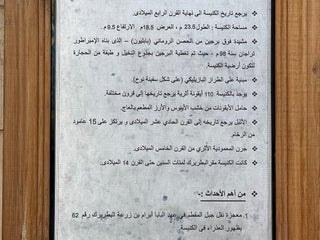 ❖ يرجع تاريخ الكنيسة الى نهاية القرن الرابع الميلادى.
❖ مساحة الكنيسة : الطول 23.5 م ، العرض 18.5م ، الارتفاع 9.5 م.
❖ مشيدة فوق برجين من الحصن الرومانى (بابليون) – الذى بناه الإمبراطور
تراجان سنة 98م – حيث تم تغطية البرجين بجذوع النخيل و طبقة من الحجارة
لتكون أرضية الكنيسة.
❖ مبنية على الطراز البازيليكى (على شكل سفينة نوح).
❖ يوجد بالكنيسة 110 أيقونة أثرية يرجع تاريخها إلى قرون مختلفة.
❖ حامل الأيقونات من خشب الأبنوس والأرز المطعم بالعاج.
❖ الأنبل يرجع تاريخه إلى القرن الحادي عشر الميلادى و يرتكز على 15 عامود
من الرخام.
❖ جرن المعمودية الأثري من القرن الخامس الميلادى.
❖ كانت الكنيسة مقر للبطريرك لمئات السنين حتى القرن 14 الميلادى.
❖ من أهم الأحداث :-
1. معجزة نقل جبل المقطم في عهد البابا أبرآم بن زرعة البطريرك رقم 62
بظهور العذراء فى الكنيسة.